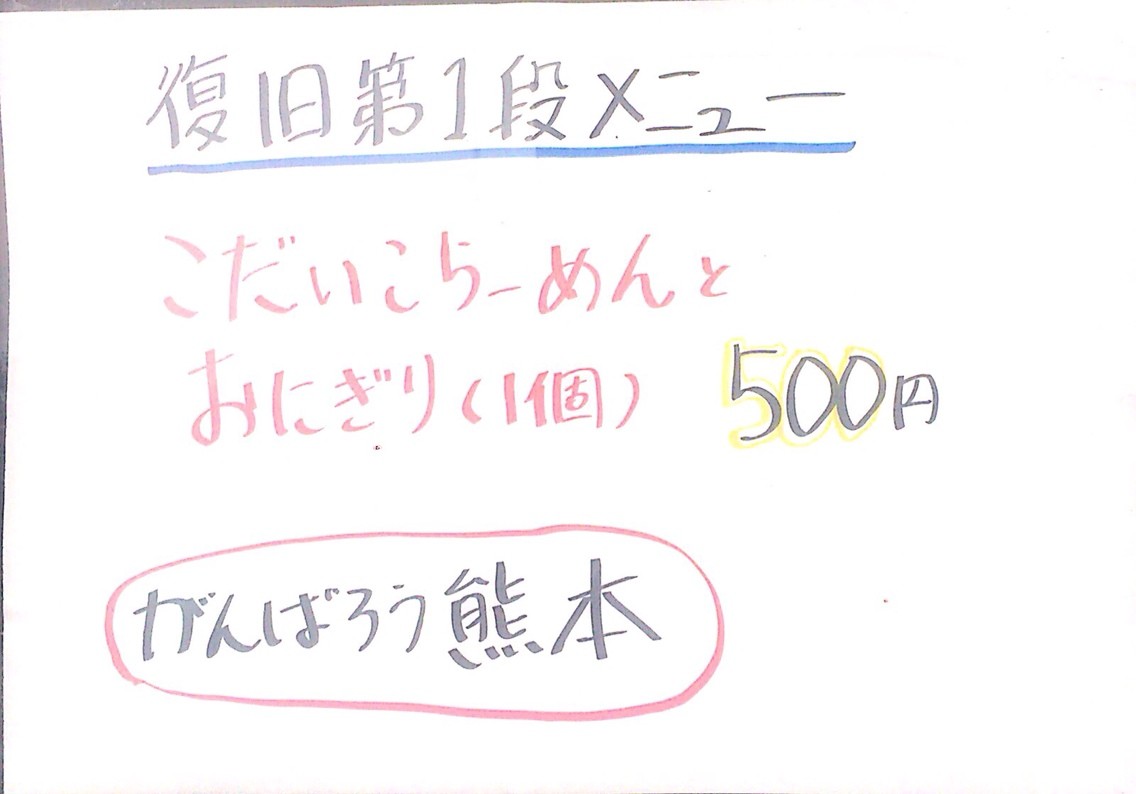 復旧第1段メニュー
こだいこらーめんと
おにぎり(1個) 500円
がんばろう熊本